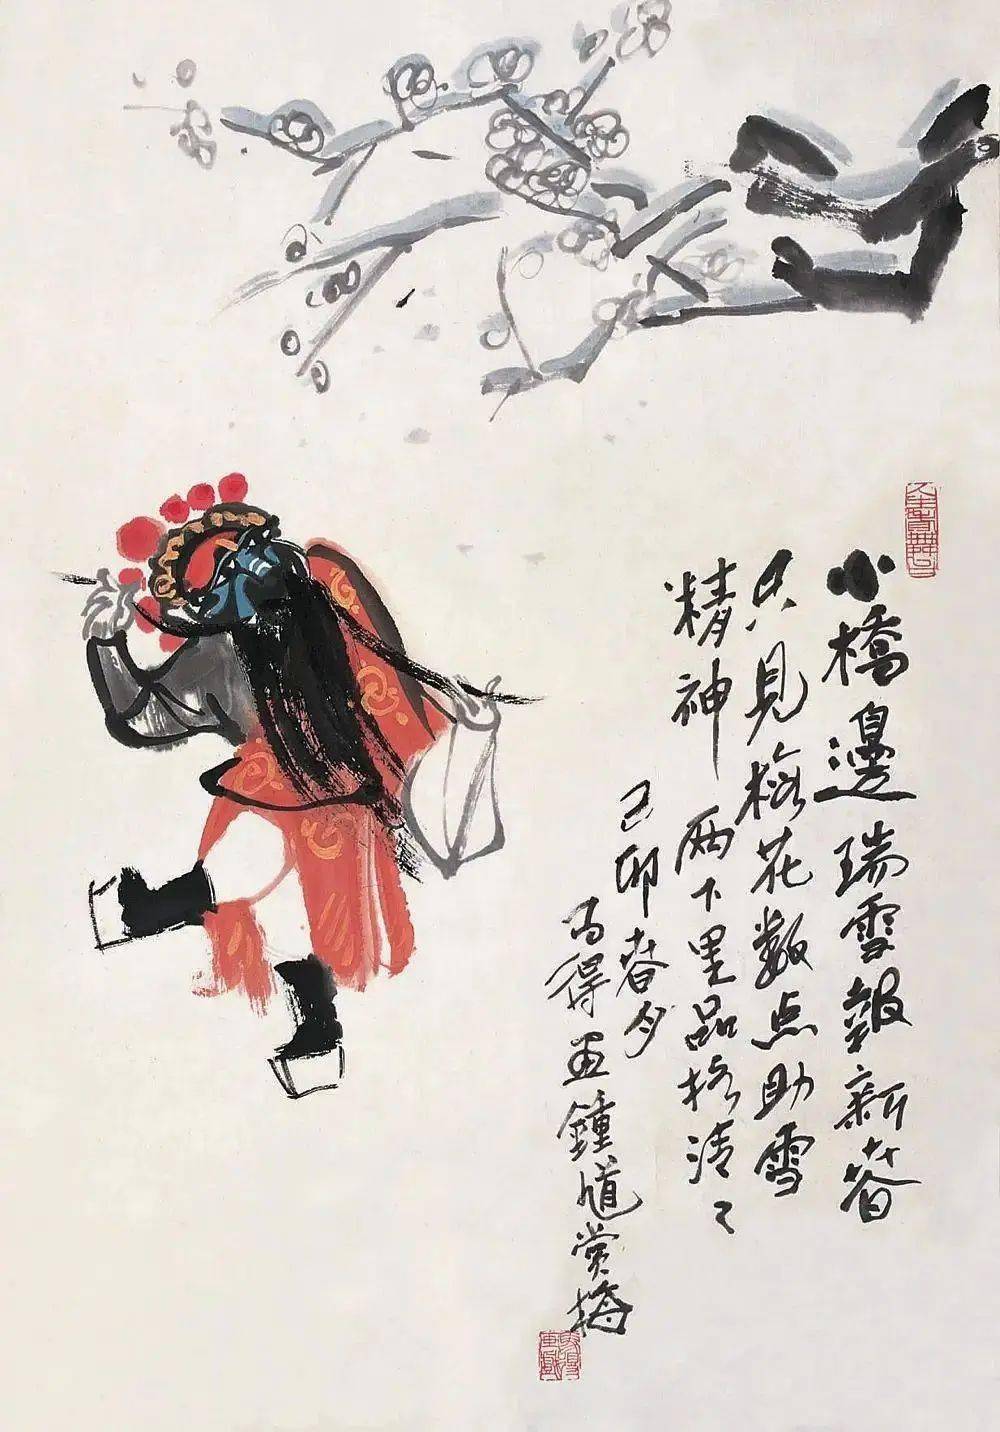 小橋邊瑞雪報新春
只見梅花數点助雪
精神兩下里品格清〻
己卯春月
馬得画鍾馗賞梅